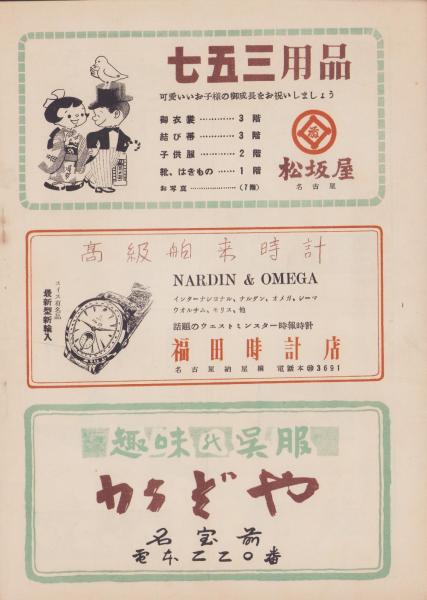 七五三用品
可愛いいお子様の御成長をお祝いしましょう
御衣裳…………3 階
結び帯…………3 階
子供服…………2 階
靴、はきもの……1 階
お写真………………(7階)
松坂屋
名古屋
高級舶来時計
スイス有名品
最新型新輸入
NARDIN & OMEGA
インターナショナル、ナルダン、オメガ、シーマ
ウオルサム、モリス、他
話題のウエストミンスター時報時計
福田時計店
名古屋納屋橋 電話本㊿3691
趣味の呉服
名宝前
電本二二〇番